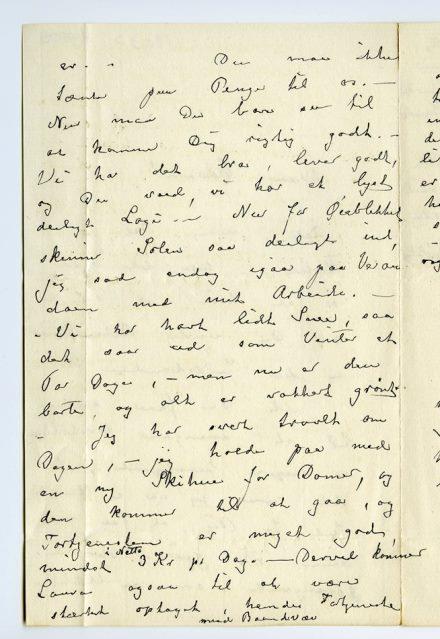 er. – Du maa ikke
tænke paa Penge til os. –
Nu maa Du bare se til
at komme Dig rigtig godt. –
Vi har det bra, lever godt,
og Du veed, vi har et lyst
deiligt Logi – Nu for Øieblikket
skinner Solen saa deiligt ind,
jeg sad endog igaar paa Veran
daen med mit Arbeide. –
– Vi har havt lidt Snee, saa
det saar ud som Vinter et
Par Dage, – men nu er den
borte, og alt er vakkert grønt.
– Jeg har svert travlt om
Dagen, – jeg holde paa med
en ny Skihue for Damer, og
den kommer til at gaa, og
Fortjenesten er meget god,
mindst i Netto 3 Kr pr Dag. – Dervil kommer
Laura ogsaa til at være
stærkt optaget, hendes Fortjeneste
med Baandvæv